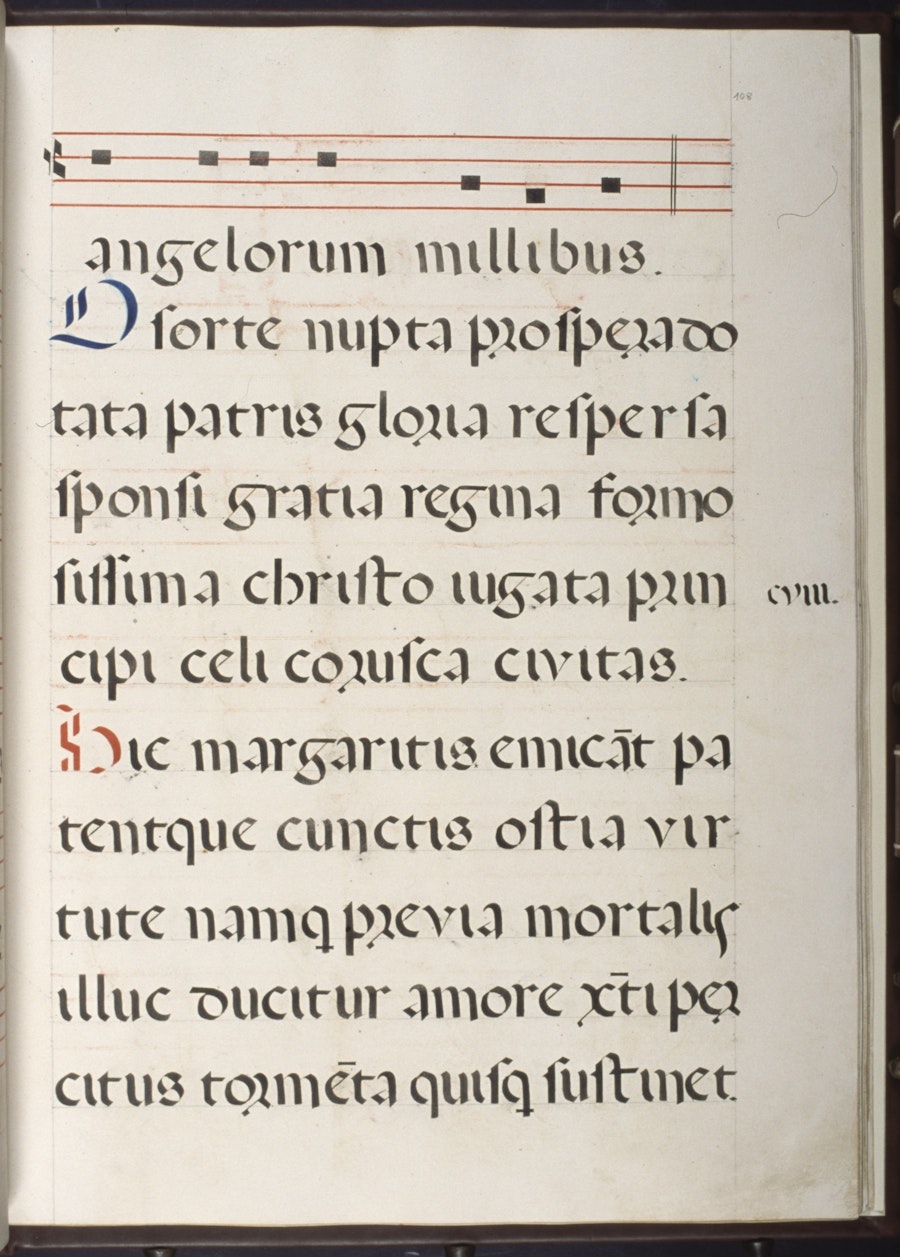 108
angelorum millibus.
O ſorte nupta proſpera do
tata patris gloria reſperſa
ſponſi gratia regina formo
ſiſſima chriſto iugata prin
cviii.
cipi celi coruſca civitas.
Hic margaritis emicāt pa
tentque cunctis oſtia vir
tute namq previa mortalis
illuc ducitur amore xp̄ti per
citus tormēta quiſq ſuſtinet.